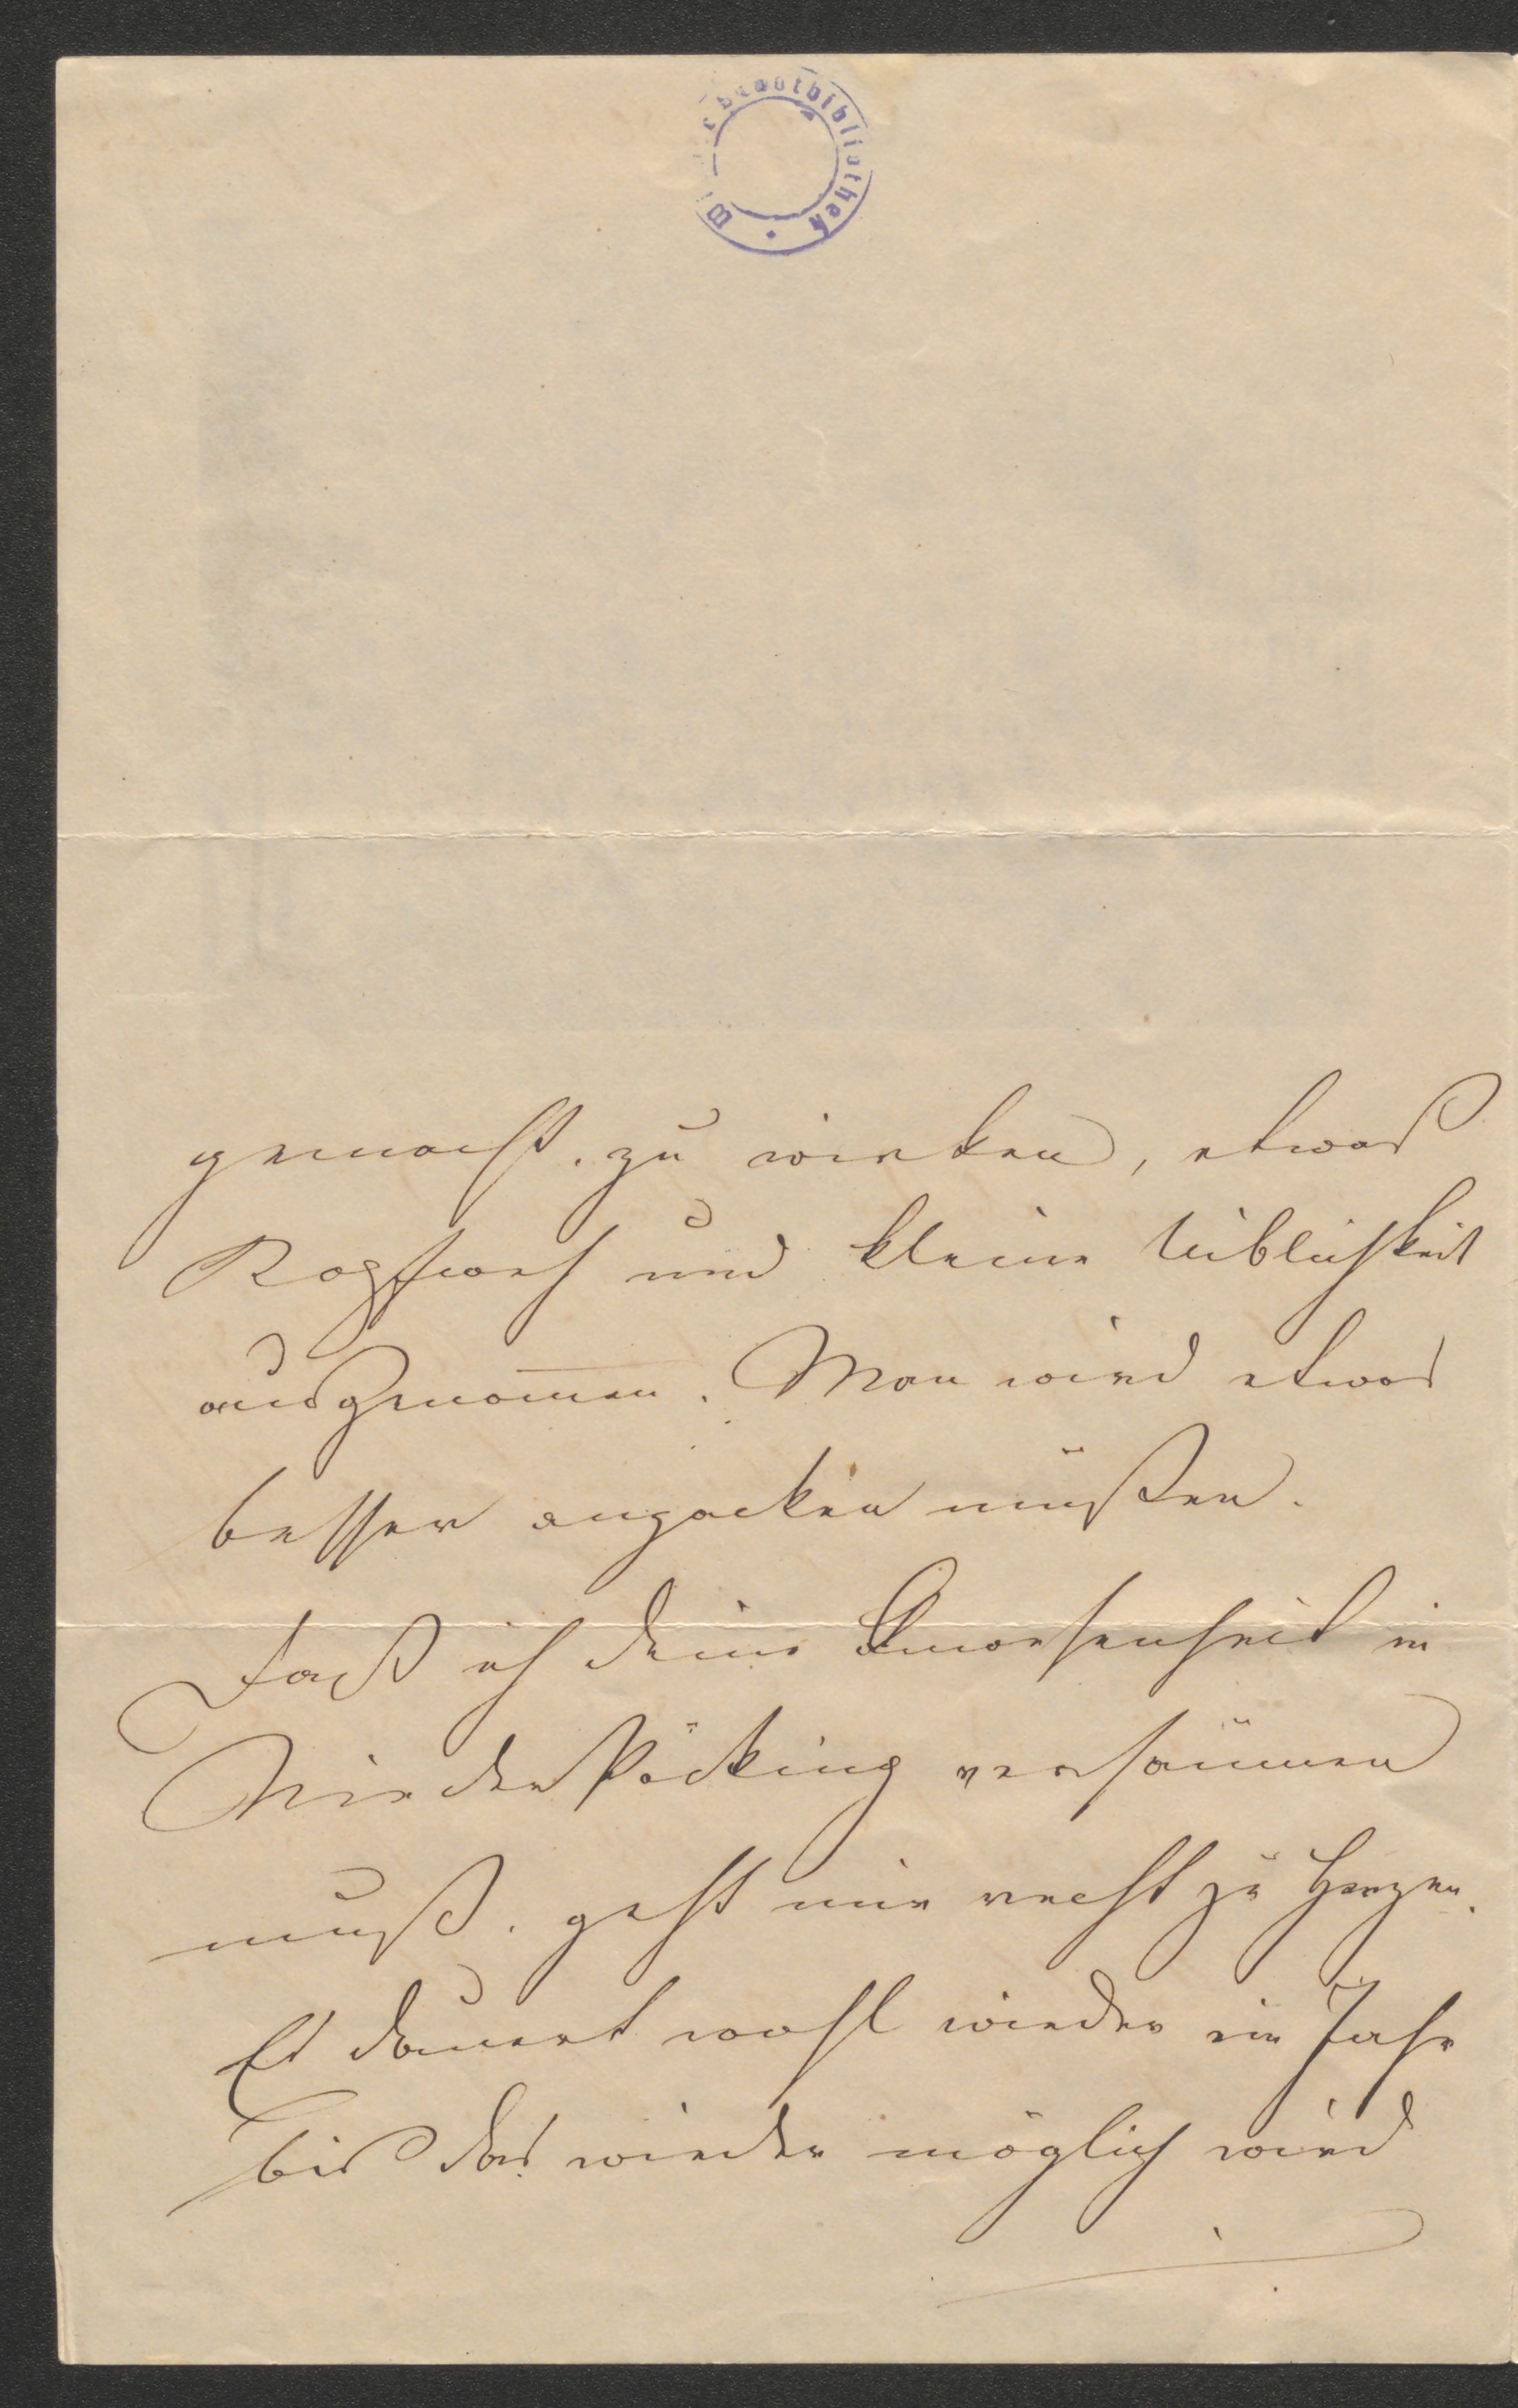 Wiener Stadtbibliothek
gemacht. zu wirken, etwas
Kopfweh und kleine Üeblichkeit
ausgenom̄en. Man wird etwas
besser anpacken müßen.
Daß ich deine Anwesenheit in
NiederPöcking versäumen
muß. geht mir recht zu Herzen.
Es dauert wohl wieder ein Jahr
bis das wieder möglich wird